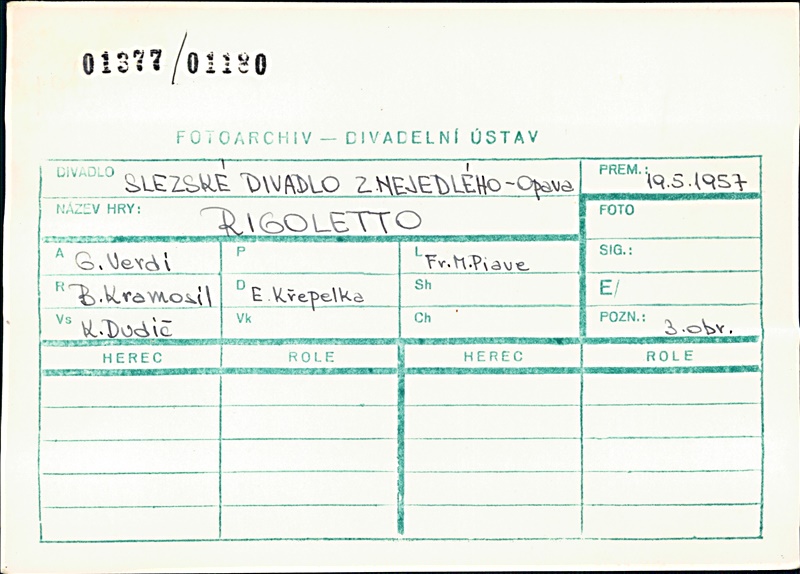 01377/01180
FOTOARCHIV — DIVADELNÍ ÚSTAV
DIVADLO SLEZSKÉ DIVADLO Z.NEJEDLÉHO-Opava PREM.: 19.5.1957
NÁZEV HRY: RIGOLETTO FOTO
A G. Verdi P L Fr.M.Piave SIG.:
R B.Kramosil D E.Křepelka Sh E/
Vs K.Dudič Vk Ch POZN.: 3.obr.
HEREC ROLE HEREC ROLE